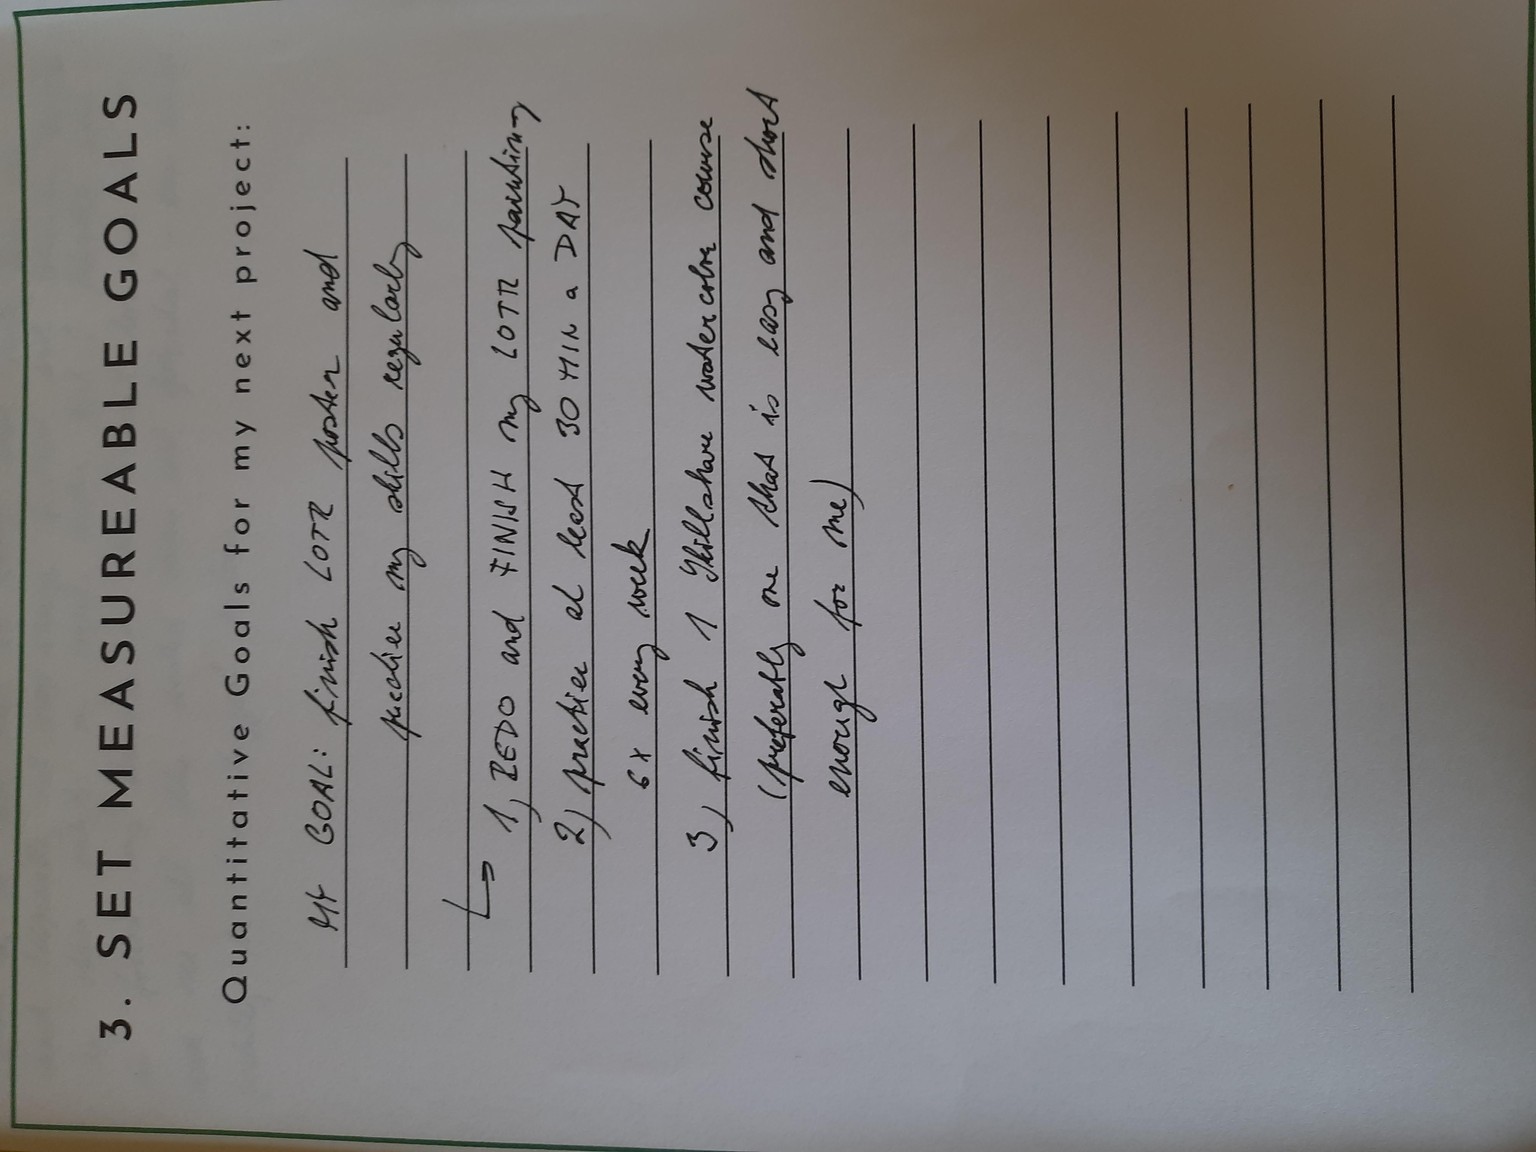 3. SET MEASUREABLE GOALS
Quantitative Goals for my next project:
MY GOAL: finish LOTR poster and
practice my skills regularly
↳ 1, REDO and FINISH my LOTR painting
2) practice at least 30 MIN a DAY
6x every week
3, finish 1 Skillshare watercolor course
(preferably one that is easy and short
enough for me)